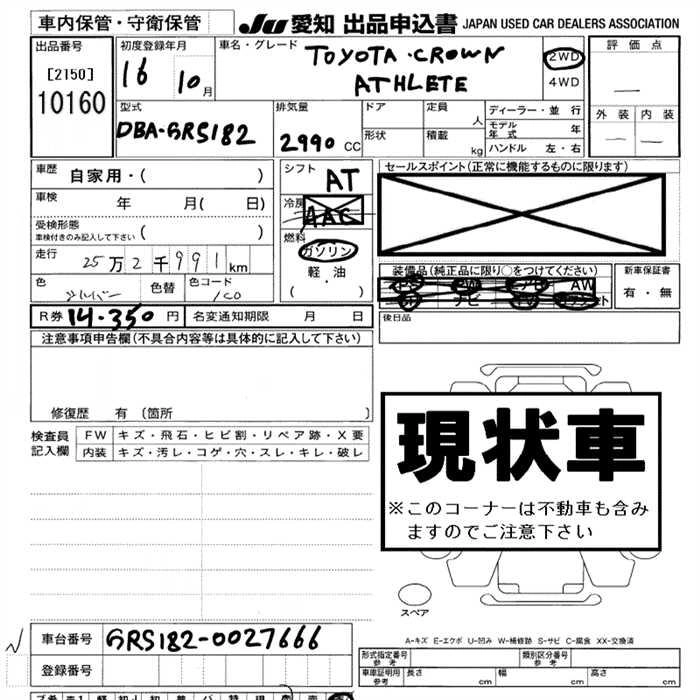 車内保管・守衛保管
JU 愛知 出品申込書 JAPAN USED CAR DEALERS ASSOCIATION
出品番号
[2150]
10160
初度登録年月
16 10月
車名・グレード
TOYOTA・CROWN
ATHLETE
2WD
4WD
評価点
—
外装 内装
— —
型式
DBA-GRS182
排気量
2990 CC
ドア
定員 人
形状
積載 kg
ディーラー・並行
モデル年式 年
ハンドル 左・右
車歴 自家用・( )
車検 年 月( 日)
受検形態
車検付きのみ記入して下さい ( )
走行 25万2千991km
色 シルバー 色替 色コード 1C0
シフト AT
冷房 AAC
燃料
ガソリン
軽・油
( ・ )
セールスポイント(正常に機能するものに限ります)
装備品(純正品に限り○をつけてください)
PW AW
ナビ
新車保証書
有・無
後日品
R券 14.350円 名変通知期限 月 日
注意事項申告欄(不具合内容等は具体的に記入して下さい)
修復歴 有 〔箇所 〕
検査員記入欄
FW キズ・飛石・ヒビ割・リペア跡・X要
内装 キズ・汚レ・コゲ・穴・スレ・キレ・破レ
現状車
※このコーナーは不動車も含み
ますのでご注意下さい
スペア
A-キズ E-エクボ U-凹み W-補修跡 S-サビ C-腐食 XX-交換済
車台番号 GRS182-0027666
登録番号
形式指定番号 参考
類別区分番号 参考
車庫証明用 参考 長さ 幅 高さ
cm cm cm